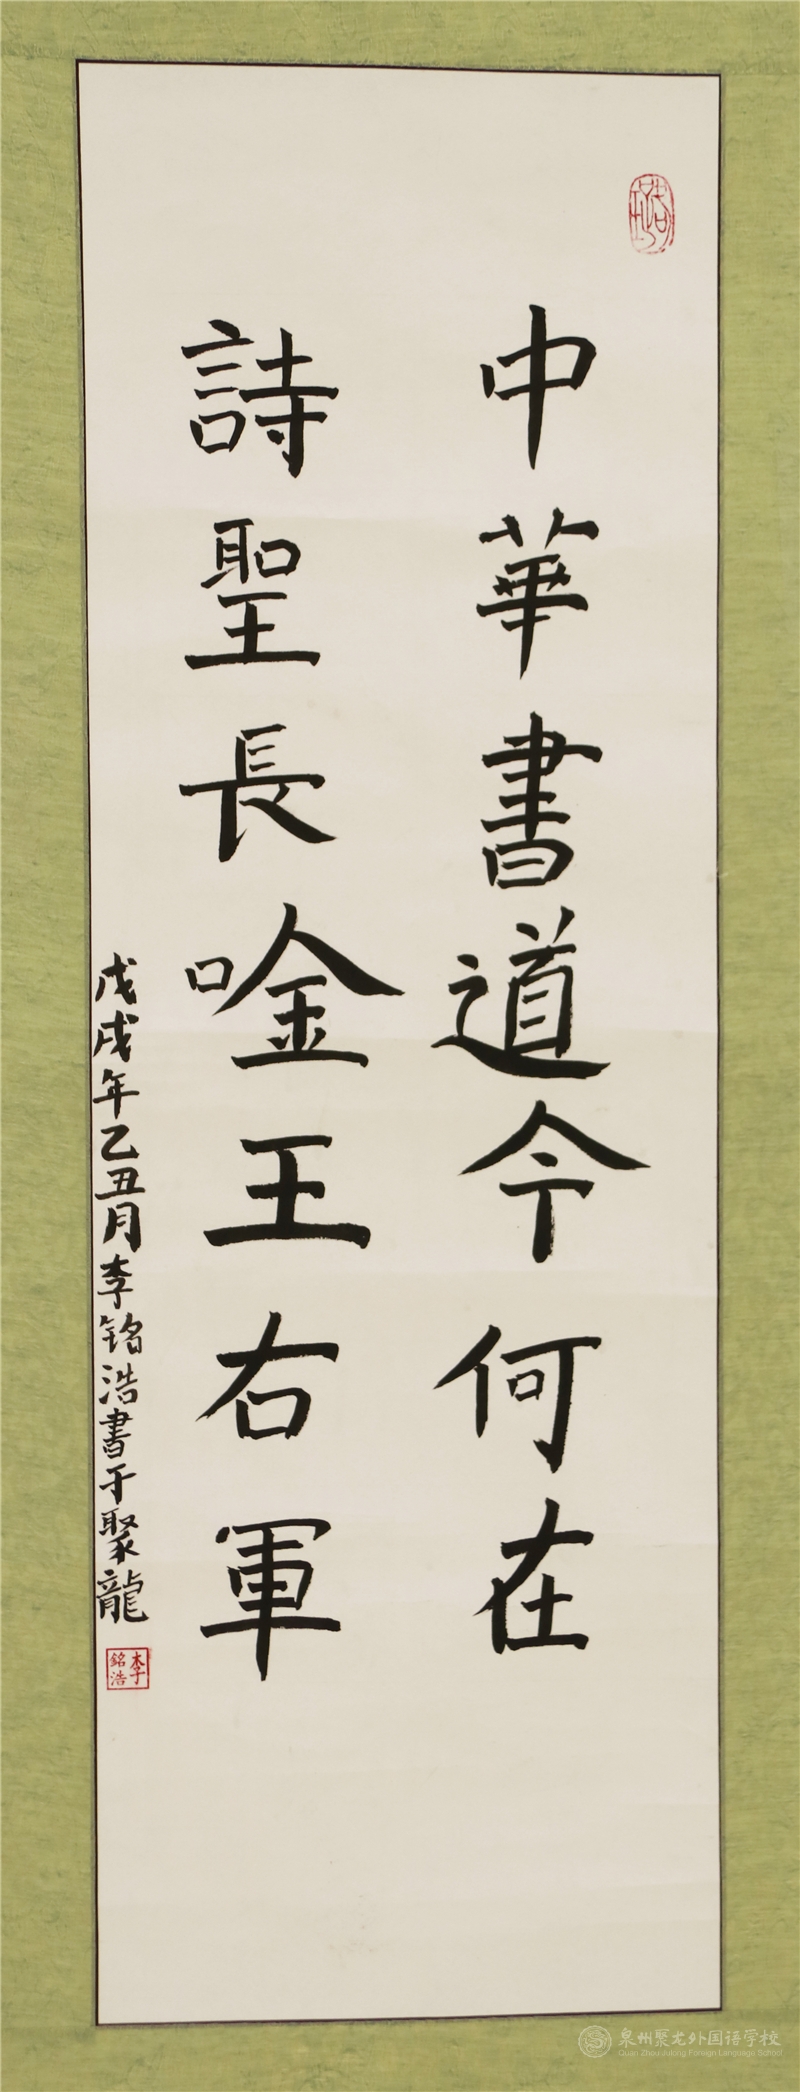 中華書道今何在
詩聖長唫王右軍
戊戌年乙丑月李铭浩書于聚龍
李銘浩
泉州聚龙外国语学校
Quan Zhou Julong Foreign Language School